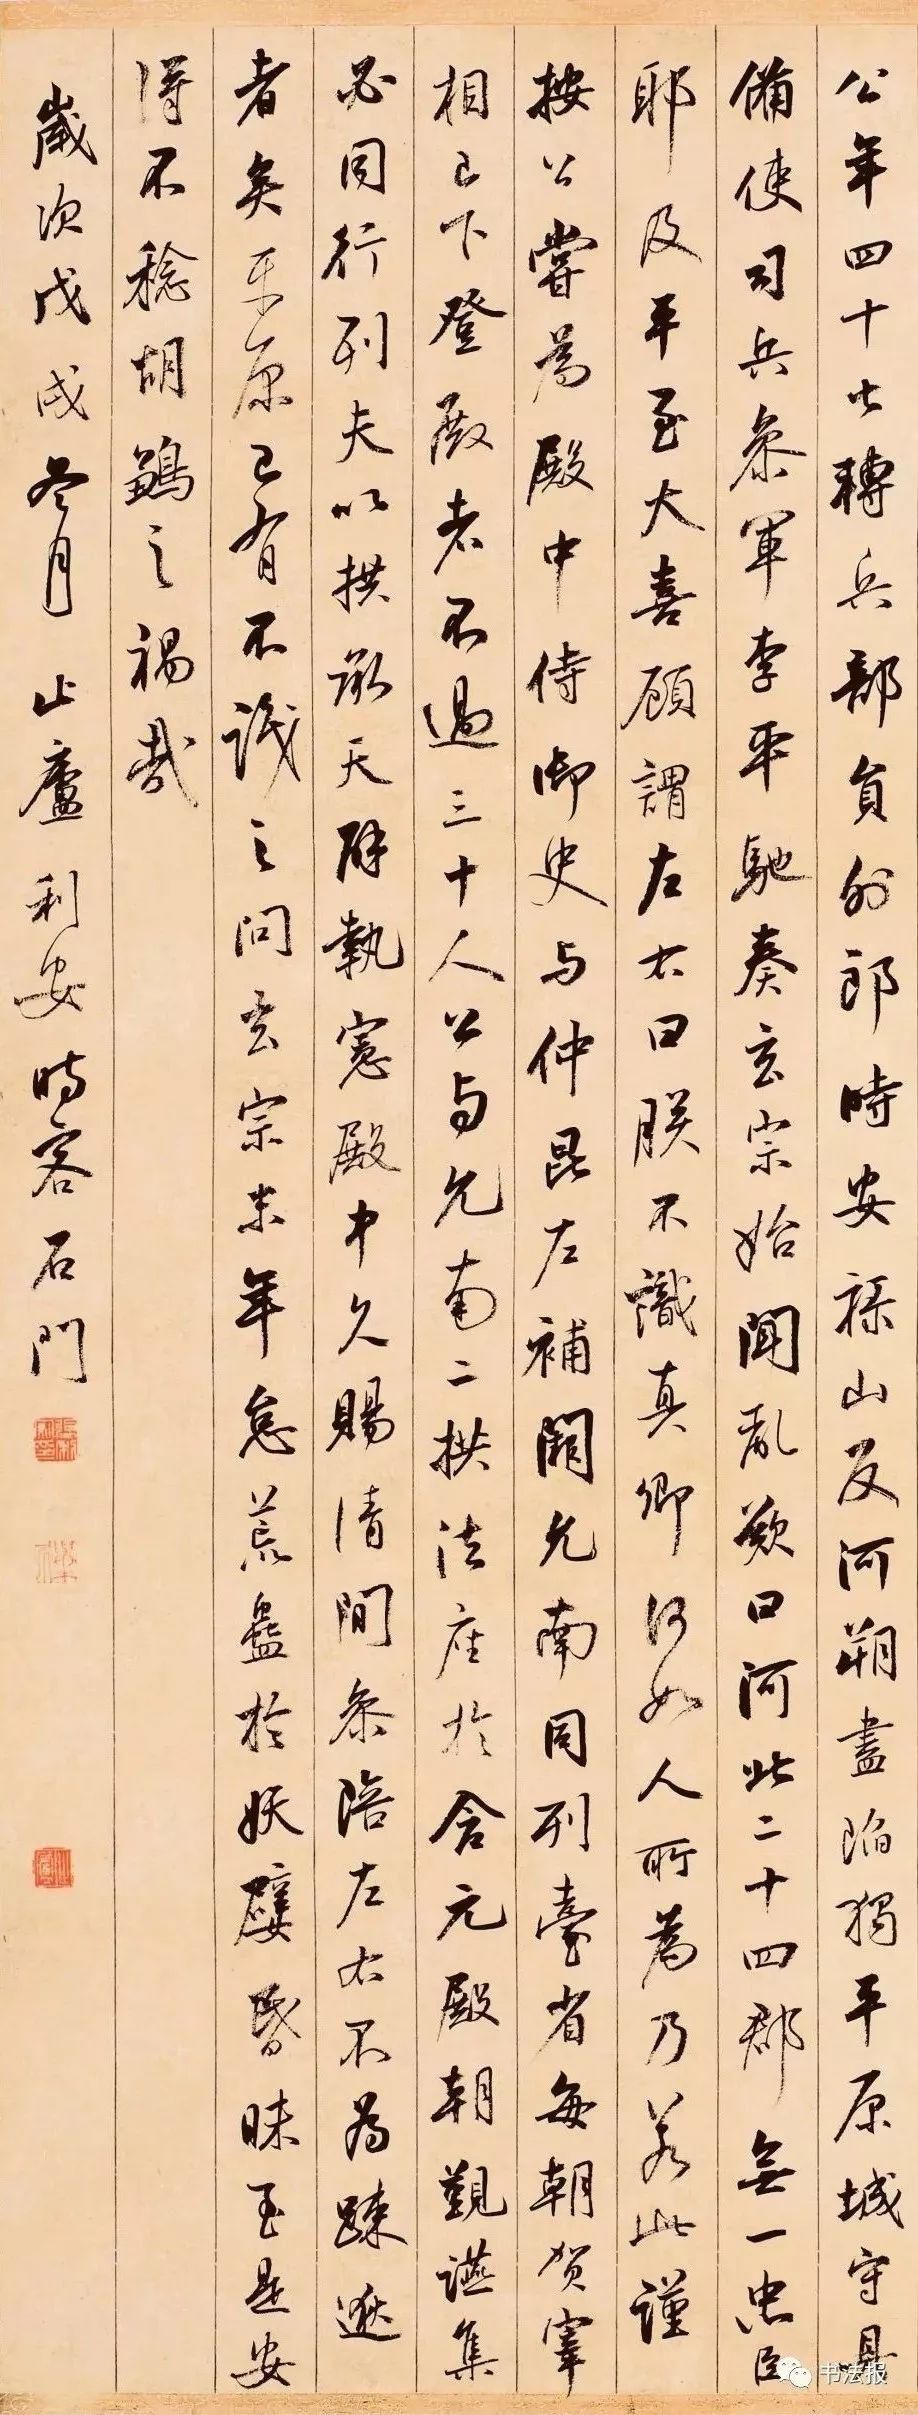 公年四十七轉兵部員外郎時安祿山反河朔盡陷獨平原城守具
備使司兵參軍李平馳奏玄宗始聞亂歎曰河北二十四郡無一忠臣
耶及平至大喜顧謂左右曰朕不識真卿何如人所為乃若此謹
按公嘗為殿中侍御史与仲昆左補闕允南同列臺省每朝賀宰
相已下登殿者不過三十人公与允南二拱法座於含元殿朝覲讌集
必同行列夫以拱承天辟執憲殿中久賜清閒參陪左右不為踈逖
者矣平原已有不識之問玄宗末年怠荒蠱於妖嬖昏昧至是安
得不稔胡鶵之禍哉
歲次戊戌冬月 止廬利安時客石門
书法报